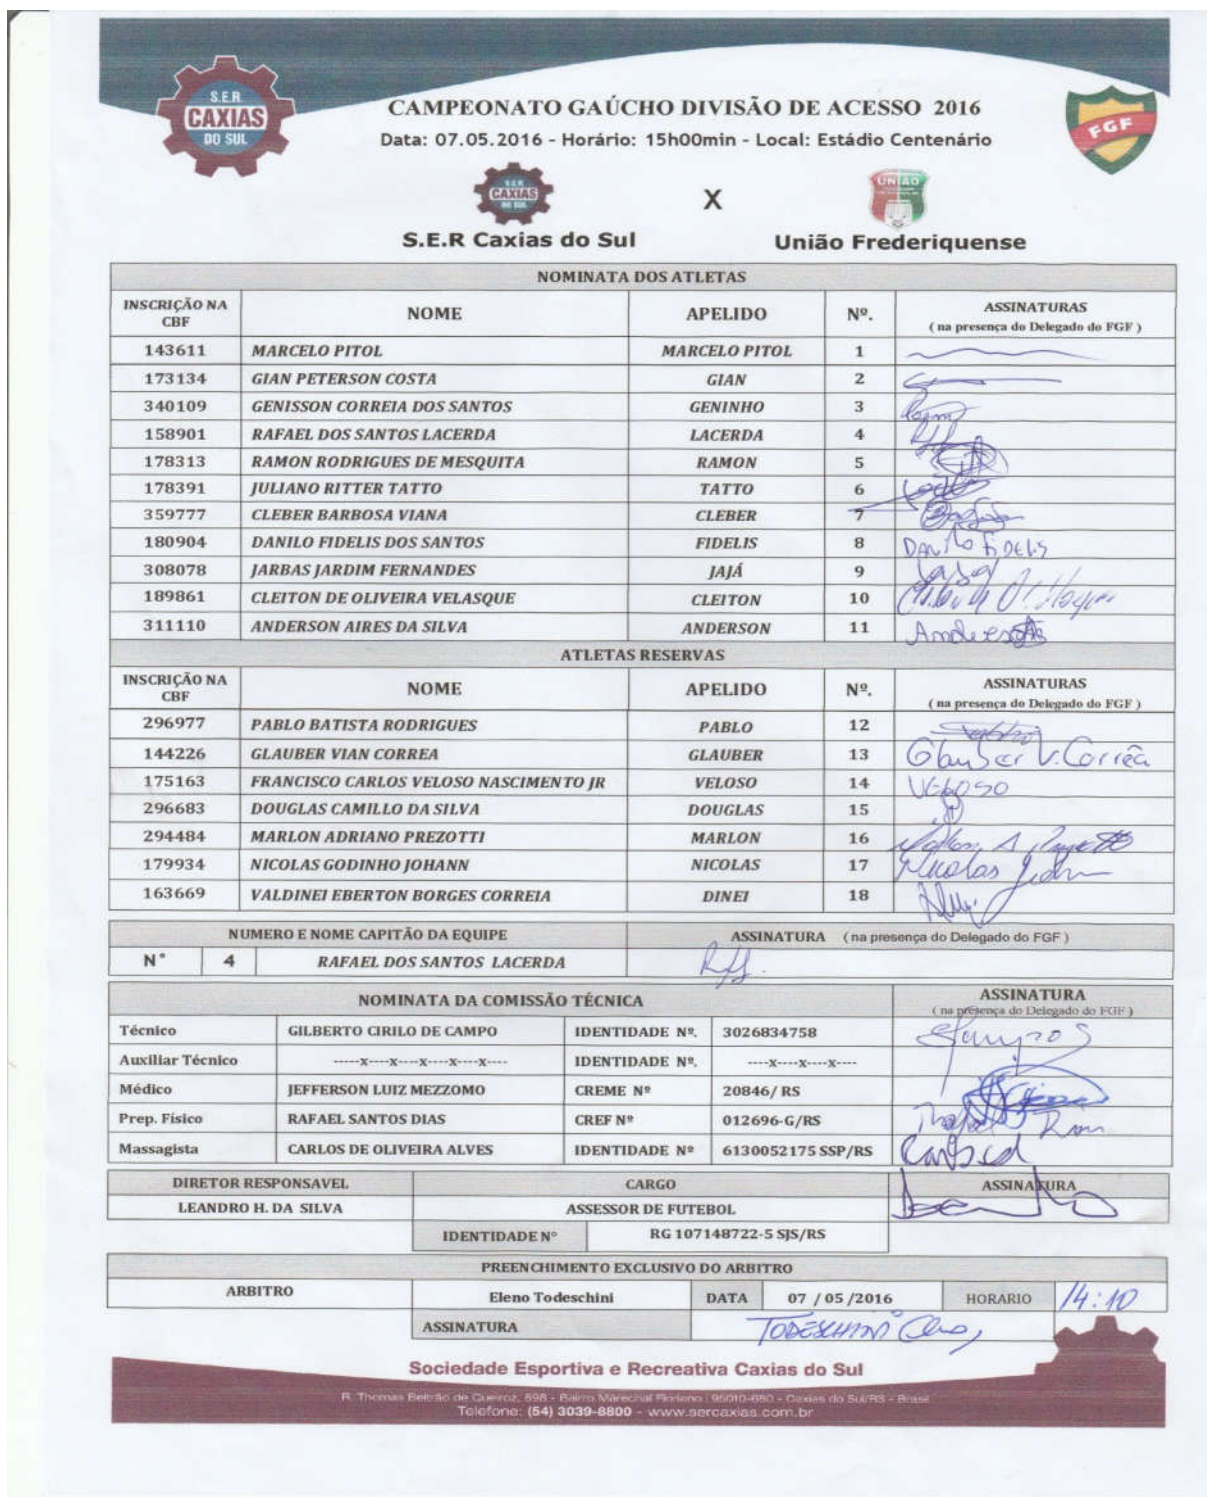 S.E.R.
CAXIAS
DO SUL
CAMPEONATO GAÚCHO DIVISÃO DE ACESSO 2016
Data: 07.05.2016 - Horário: 15h00min - Local: Estádio Centenário
FGF
S.E.R
CAXIAS
DO SUL
X
UNIÃO
S.E.R Caxias do Sul União Frederiquense
NOMINATA DOS ATLETAS
INSCRIÇÃO NA CBF NOME APELIDO Nº. ASSINATURAS ( na presença do Delegado do FGF )
143611 MARCELO PITOL MARCELO PITOL 1
173134 GIAN PETERSON COSTA GIAN 2
340109 GENISSON CORREIA DOS SANTOS GENINHO 3
158901 RAFAEL DOS SANTOS LACERDA LACERDA 4
178313 RAMON RODRIGUES DE MESQUITA RAMON 5
178391 JULIANO RITTER TATTO TATTO 6
359777 CLEBER BARBOSA VIANA CLEBER 7
180904 DANILO FIDELIS DOS SANTOS FIDELIS 8 DANILO FIDELIS
308078 JARBAS JARDIM FERNANDES JAJÁ 9
189861 CLEITON DE OLIVEIRA VELASQUE CLEITON 10
311110 ANDERSON AIRES DA SILVA ANDERSON 11 Anderson
ATLETAS RESERVAS
INSCRIÇÃO NA CBF NOME APELIDO Nº. ASSINATURAS ( na presença do Delegado do FGF )
296977 PABLO BATISTA RODRIGUES PABLO 12
144226 GLAUBER VIAN CORREA GLAUBER 13 Glauber V. Corrêa
175163 FRANCISCO CARLOS VELOSO NASCIMENTO JR VELOSO 14 VELOSO
296683 DOUGLAS CAMILLO DA SILVA DOUGLAS 15
294484 MARLON ADRIANO PREZOTTI MARLON 16
179934 NICOLAS GODINHO JOHANN NICOLAS 17 Nicolas
163669 VALDINEI EBERTON BORGES CORREIA DINEI 18
NUMERO E NOME CAPITÃO DA EQUIPE ASSINATURA ( na presença do Delegado do FGF )
N° 4 RAFAEL DOS SANTOS LACERDA
NOMINATA DA COMISSÃO TÉCNICA ASSINATURA ( na presença do Delegado do FGF )
Técnico GILBERTO CIRILO DE CAMPO IDENTIDADE Nº. 3026834758
Auxiliar Técnico -----x----x----x----x----x---- IDENTIDADE Nº. ----x----x----x----
Médico JEFFERSON LUIZ MEZZOMO CREME Nº 20846/ RS
Prep. Físico RAFAEL SANTOS DIAS CREF Nº 012696-G/RS
Massagista CARLOS DE OLIVEIRA ALVES IDENTIDADE Nº 6130052175 SSP/RS
DIRETOR RESPONSAVEL CARGO ASSINATURA
LEANDRO H. DA SILVA ASSESSOR DE FUTEBOL
IDENTIDADE N° RG 107148722-5 SJS/RS
PREENCHIMENTO EXCLUSIVO DO ARBITRO
ARBITRO Eleno Todeschini DATA 07 / 05 /2016 HORARIO 14:10
ASSINATURA TODESCHINI
Sociedade Esportiva e Recreativa Caxias do Sul
R. Thomas Beltrão de Queiroz, 898 - Bairro Marechal Floriano | 95010-680 - Caxias do Sul/RS - Brasil
Telefone: (54) 3039-8800 - www.sercaxias.com.br